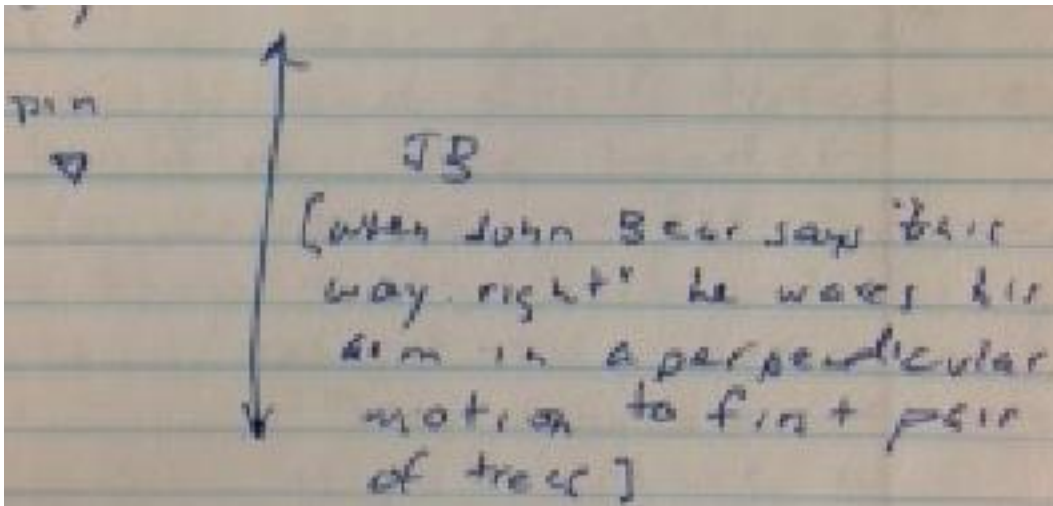 pin
JB
[when John Bear says "this
way. right" he waves his
arm in a perpendicular
motion to first pair
of trees]